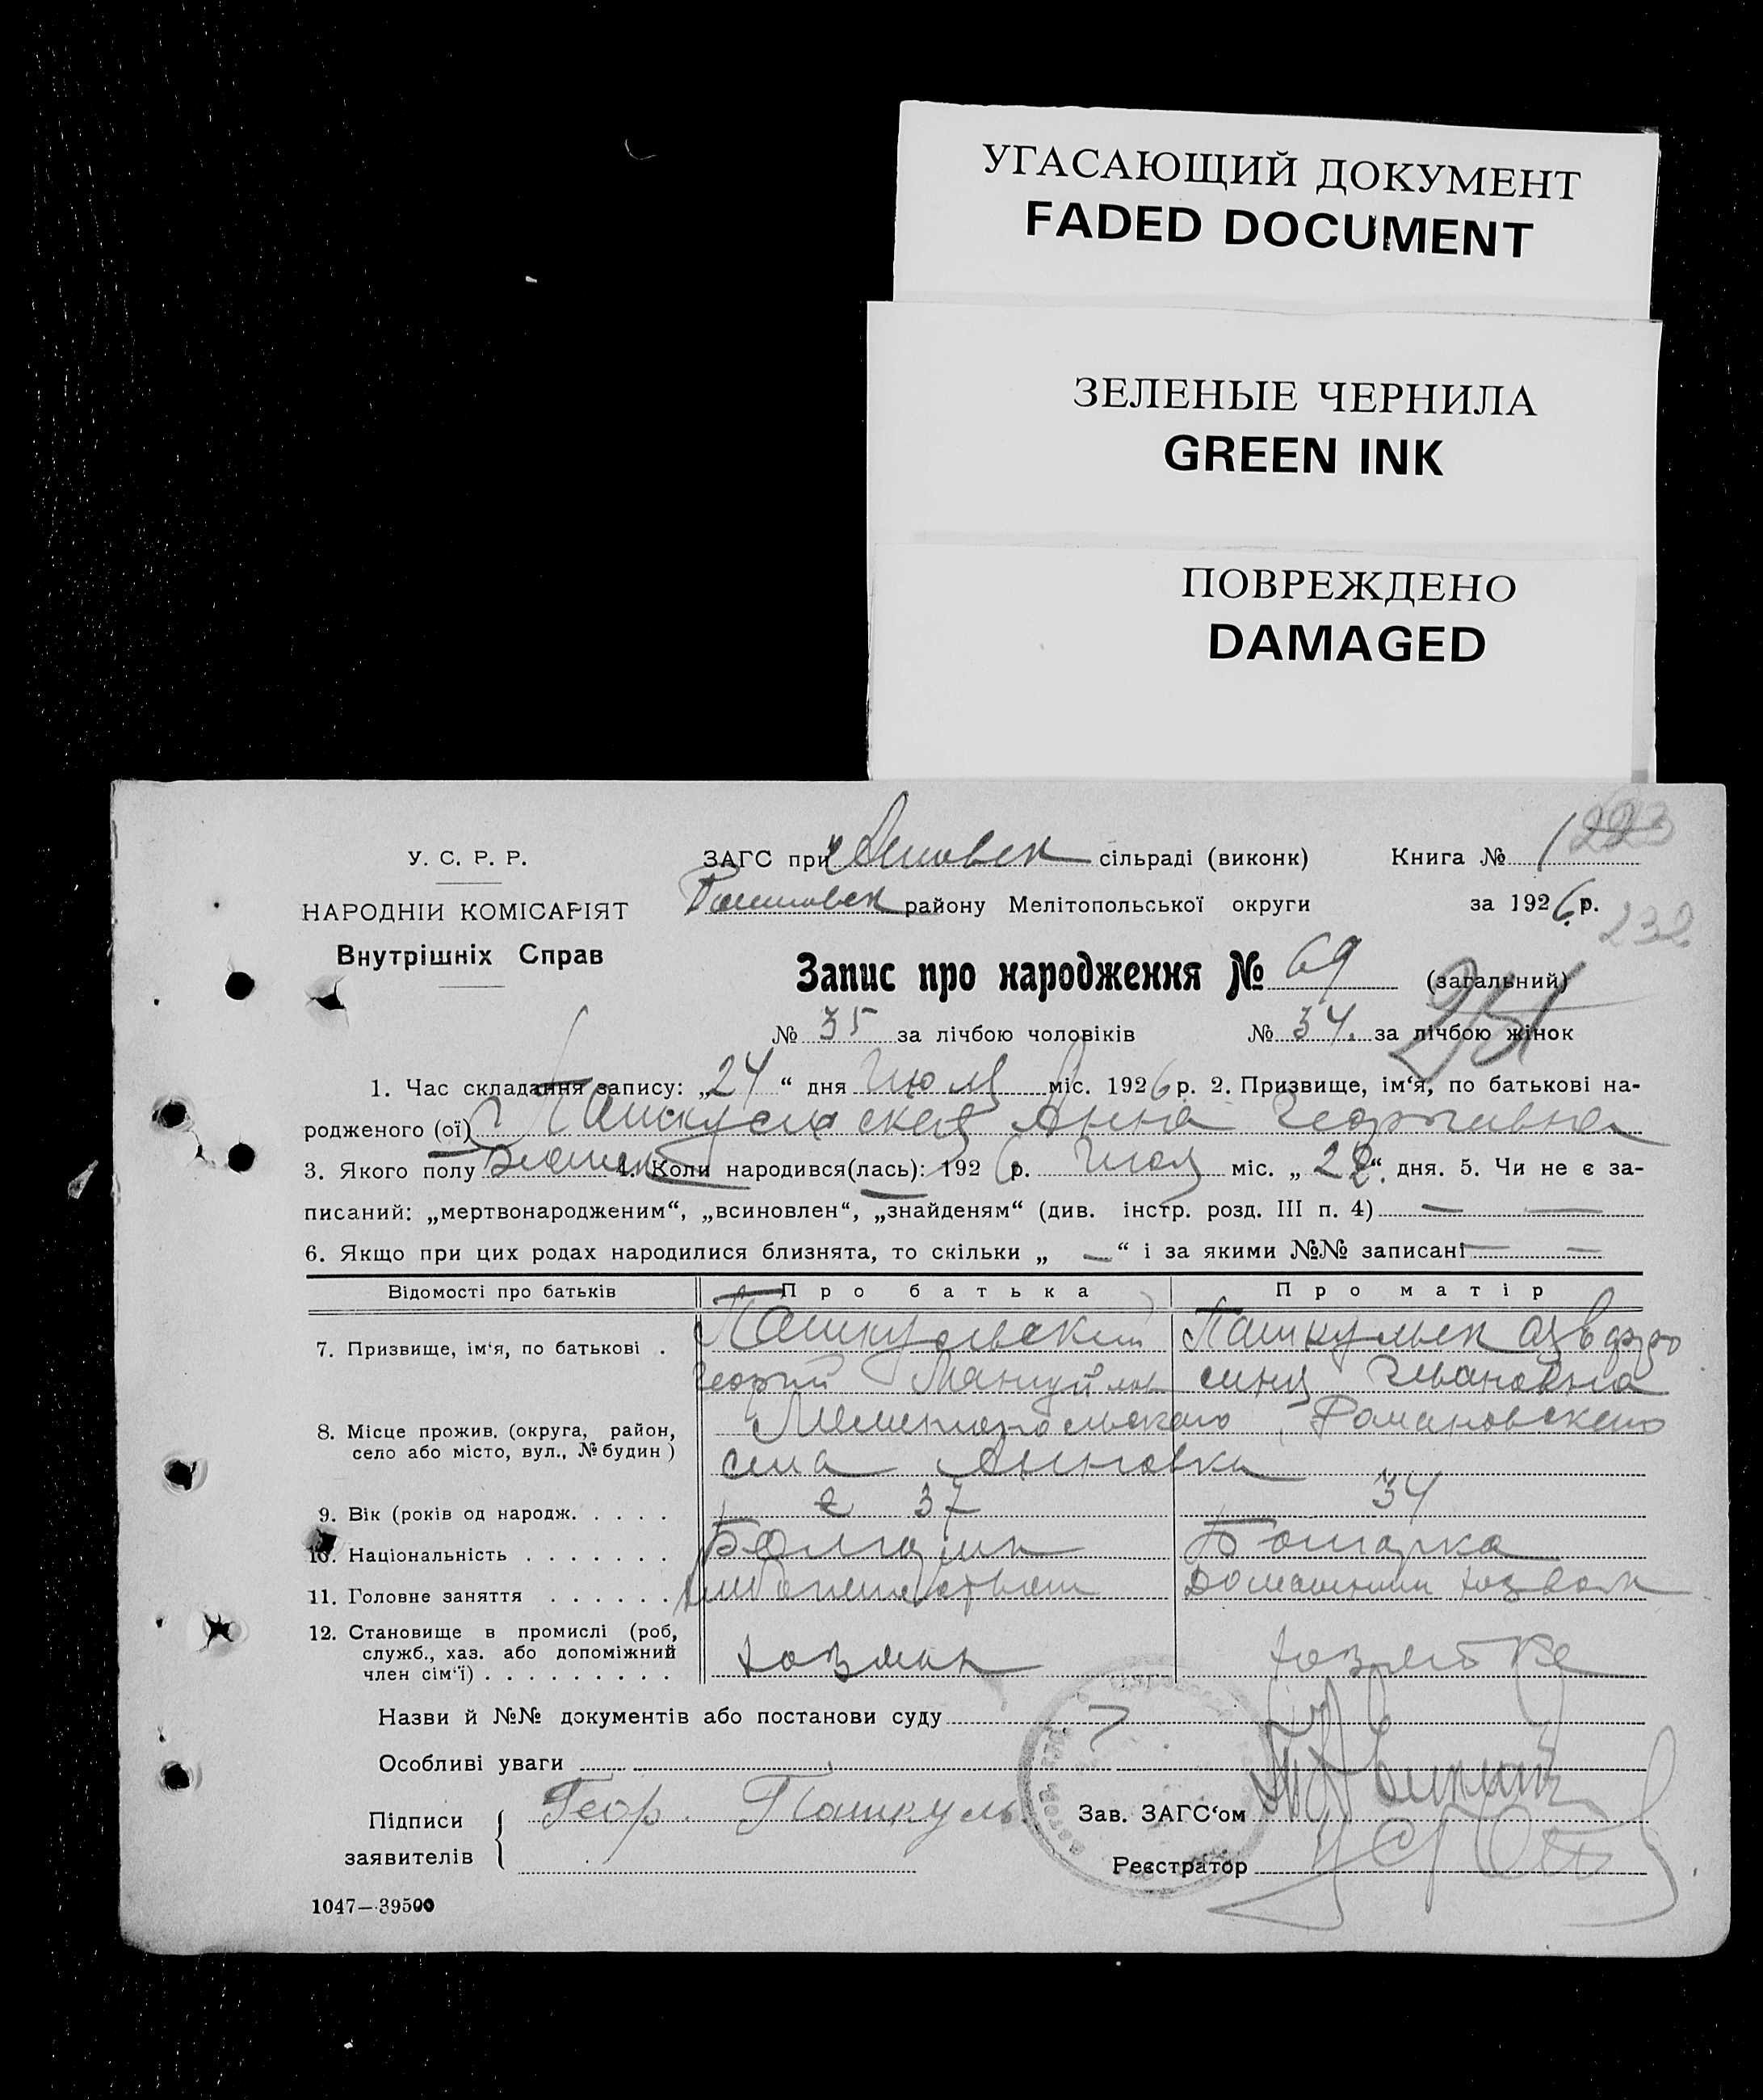 УГАСАЮЩИЙ ДОКУМЕНТ
FADED DOCUMENT
ЗЕЛЕНЫЕ ЧЕРНИЛА
GREEN INK
ПОВРЕЖДЕНО
DAMAGED
223
У. С. Р. Р.
ЗАГС при сільраді (виконк) Книга № 1
НАРОДНІЙ КОМІСАРІЯТ
району Мелітопольської округи за 1926 р.
232
Внутрішніх Справ
Запис про народження № 69 (загальний)
№ 35 за лічбою чоловіків № 34. за лічбою жінок
1. Час складання запису: „24“ дня Июля міс. 1926 р. 2. Призвище, ім‘я, по батькові на-
родженого (ої) Пашкульская Анна Георгиевна
3. Якого полу женск 4. Коли народився(лась): 1926 р. Июля міс. „22“. дня. 5. Чи не є за-
писаний: „мертвонародженим“, „всиновлен“, „знайденям“ (див. інстр. розд. III п. 4) — —
6. Якщо при цих родах народилися близнята, то скільки „ — “ і за якими №№ записані — —
Відомості про батьків Про батька Про матір
7. Призвище, ім‘я, по батькові . Пашкульский Пашкульская Ефро
Георгий Мануйлов синя Ивановна
8. Місце прожив. (округа, район, Мелитопольского Романовского
село або місто, вул., № будин) села Анновка
9. Вік (років од народж. . . . . 37 34
10. Національність . . . . . . . Болгарин Болгарка
11. Головне заняття . . . . . . Хлебопашество Домашним хозяй
12. Становище в промислі (роб,
служб., хаз. або допоміжний
член сім‘ї) . . . . . . . . . хозяин хозяйке
Назви й №№ документів або постанови суду
Особливі уваги
Підписи Геор. Пашкуль Зав. ЗАГС‘ом
заявителів
Реєстратор
1047—39500